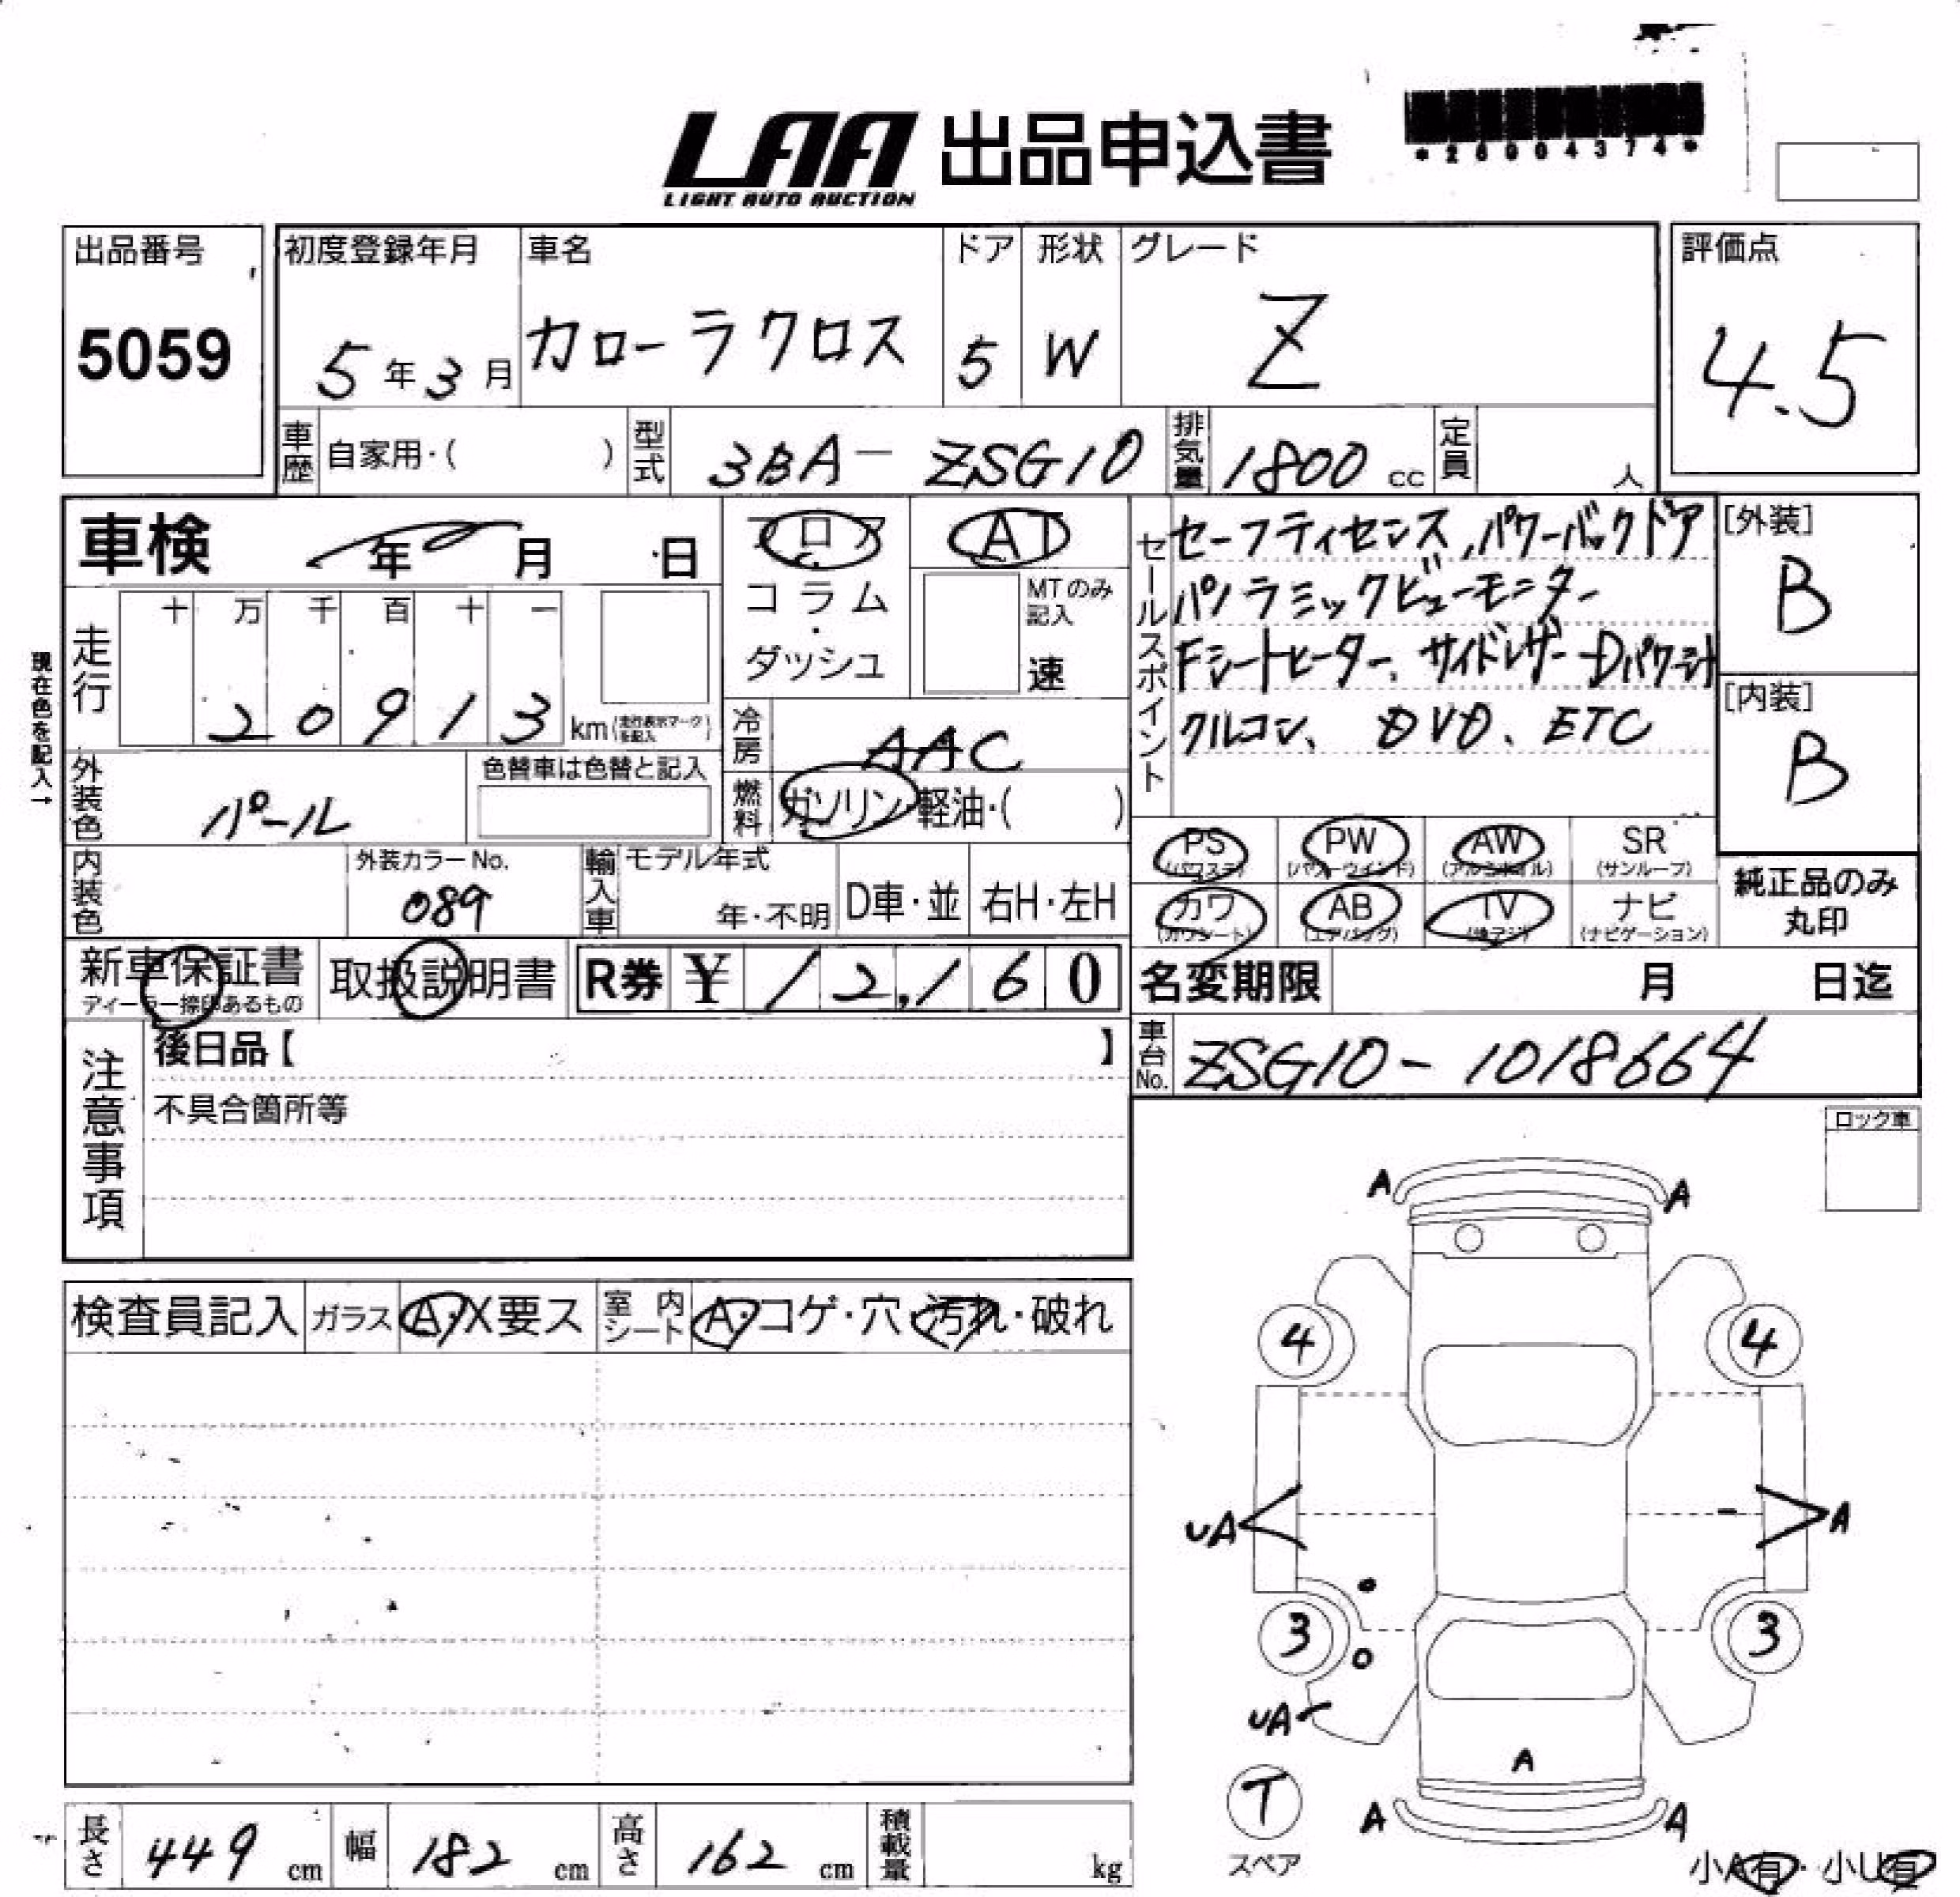 LAA 出品申込書
LIGHT AUTO AUCTION
*26904374*
出品番号
5059
初度登録年月
5年3月
車名
カローラクロス
ドア
5
形状
W
グレード
Z
評価点
4.5
車歴 自家用・( )
型式 3BA-ZSG10
排気量 1800cc
定員 人
車検 年 月 日
フロア
・
コラム
・
ダッシュ
AT
MTのみ
記入
速
セールスポイント
セーフティセンス,パワーバックドア
パノラミックビューモニター
Fシートヒーター、サイドレザーDパワー汁
クルコン、DVD、ETC
[外装]
B
[内装]
B
現在色を記入→
走行
十 万 千 百 十 一
2 0 9 1 3 km(走行表示マークを記入)
冷房 AAC
外装色 パール
色替車は色替と記入
燃料 ガソリン・軽油・( )
内装色
外装カラーNo.
089
輸入車
モデル年式
年・不明
D車・並
右H・左H
PS (パワステ)
PW (パワーウインド)
AW (アルミホイル)
SR (サンルーフ)
カワ (カワシート)
AB (エアバッグ)
TV (地デジ)
ナビ (ナビゲーション)
純正品のみ
丸印
新車保証書
ディーラー捺印あるもの
取扱説明書
R券 ¥12,160
名変期限 月 日迄
車台No. ZSG10-1018664
注意事項
後日品【 】
不具合箇所等
ロック車
検査員記入 ガラス A・X要ス
室内シート A・コゲ・穴・汚れ・破れ
A A
4 4
UA A
3 3
UA
A
T
スペア
A A
小A有・小U有
長さ 449 cm
幅 182 cm
高さ 162 cm
積載量 kg